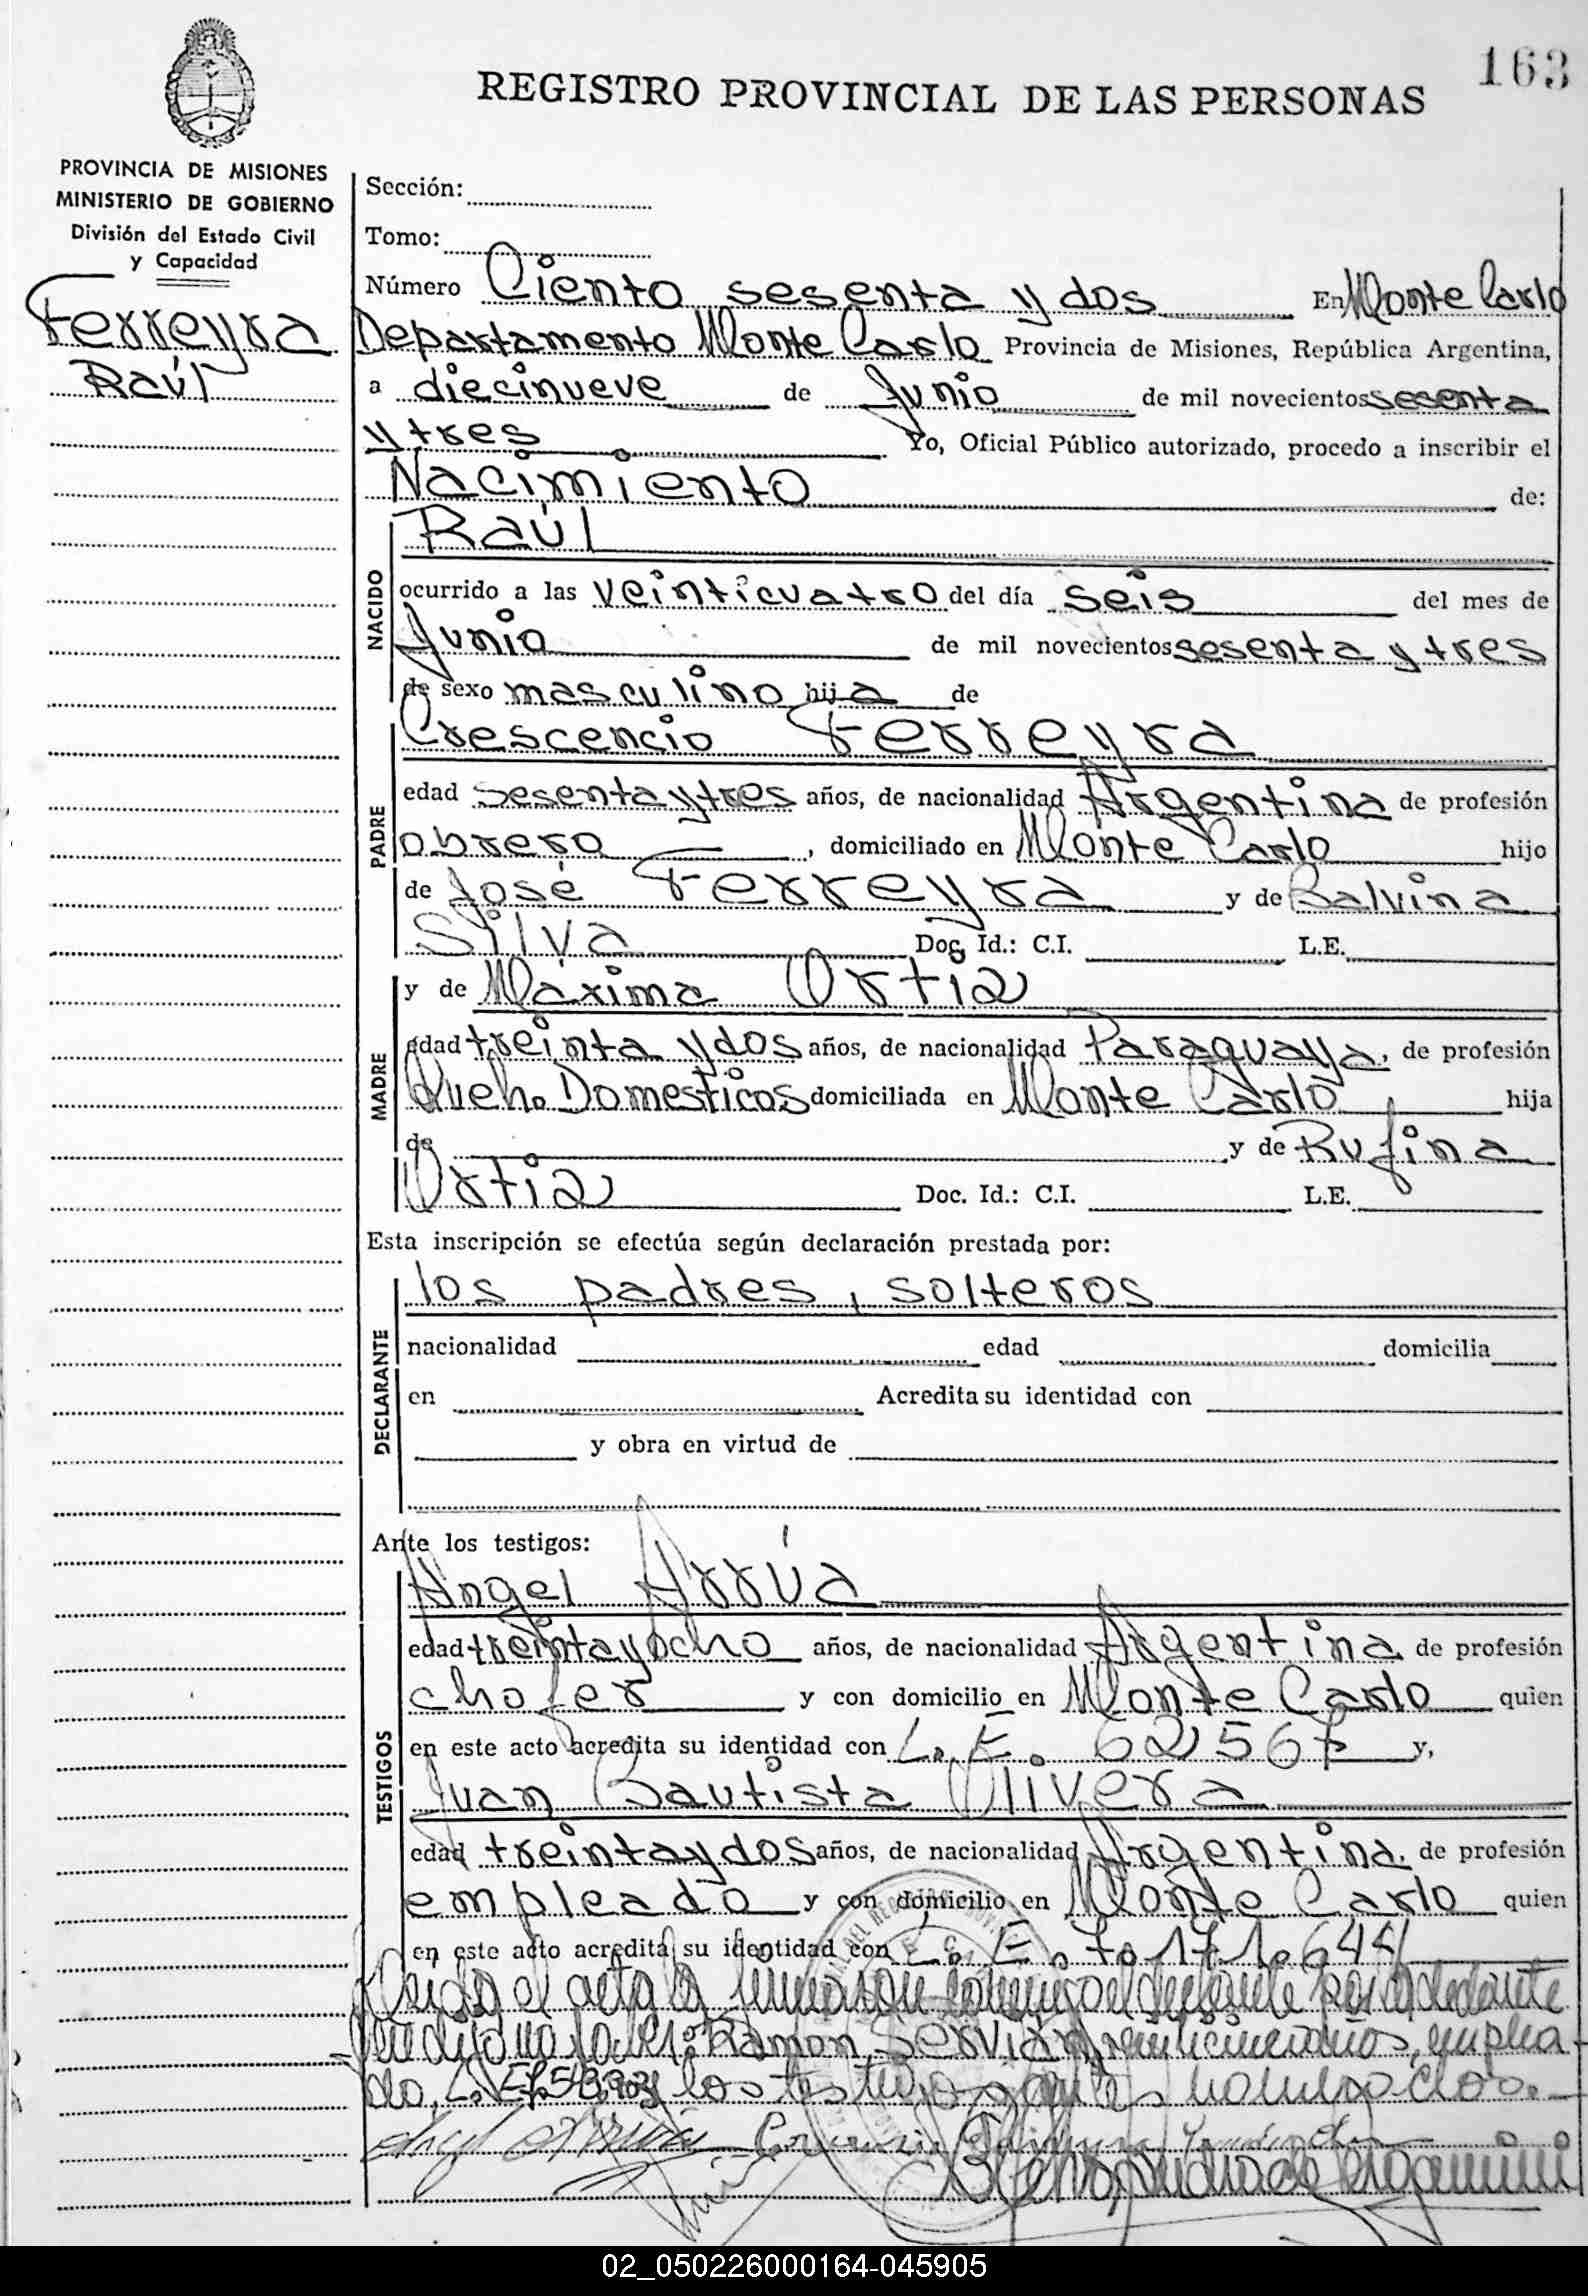 163
REGISTRO PROVINCIAL DE LAS PERSONAS
PROVINCIA DE MISIONES
MINISTERIO DE GOBIERNO
División del Estado Civil
y Capacidad
Ferreyra
Raúl
Sección:
Tomo:
Número Ciento sesenta y dos En Monte Carlo
Departamento Monte Carlo Provincia de Misiones, República Argentina,
a diecinueve de Junio de mil novecientos sesenta
y tres Yo, Oficial Público autorizado, procedo a inscribir el
Nacimiento de:
NACIDO
Raúl
ocurrido a las veinticuatro del día seis del mes de
Junio de mil novecientos sesenta y tres
de sexo masculino hija de
PADRE
Crescencio Ferreyra
edad sesenta y tres años, de nacionalidad Argentina de profesión
obrero, domiciliado en Monte Carlo hijo
de José Ferreyra y de Balvina
Silva Doc. Id.: C.I. L.E.
MADRE
y de Máxima Ortiz
edad treinta y dos años, de nacionalidad Paraguaya, de profesión
Queh. Domesticos domiciliada en Monte Carlo, hija
de y de Rufina
Ortiz Doc. Id.: C.I. L.E.
Esta inscripción se efectúa según declaración prestada por:
DECLARANTE
los padres, solteros
nacionalidad edad domicilia
en Acredita su identidad con
y obra en virtud de
Ante los testigos:
TESTIGOS
Angel Arrúa
edad treinta y ocho años, de nacionalidad Argentina de profesión
chofer y con domicilio en Monte Carlo quien
en este acto acredita su identidad con L. E. y,
Juan Bautista Olivera
edad treinta y dos años, de nacionalidad Argentina. de profesión
empleado y con domicilio en Monte Carlo quien
en este acto acredita su identidad con L. E. 7.171.644
Leída el acta la firmaron conmigo el declarante
Ramon Servian, veinticinco años, emplea-
do, L. E. los testigos
02_050226000164-045905